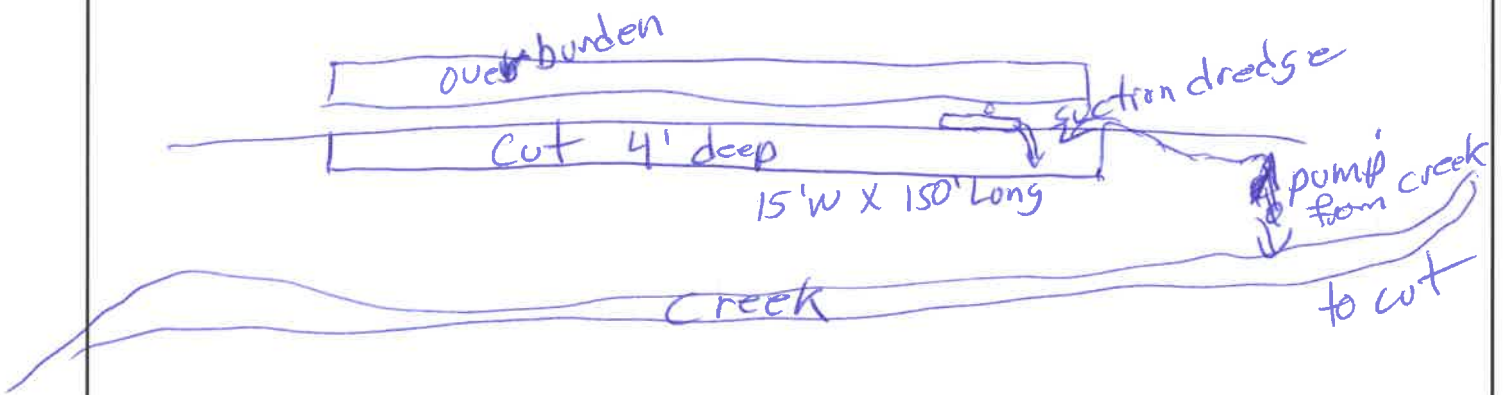 overburden
suction dredge
Cut 4' deep
15'W X 150' Long
pump
from creek
to cut
Creek